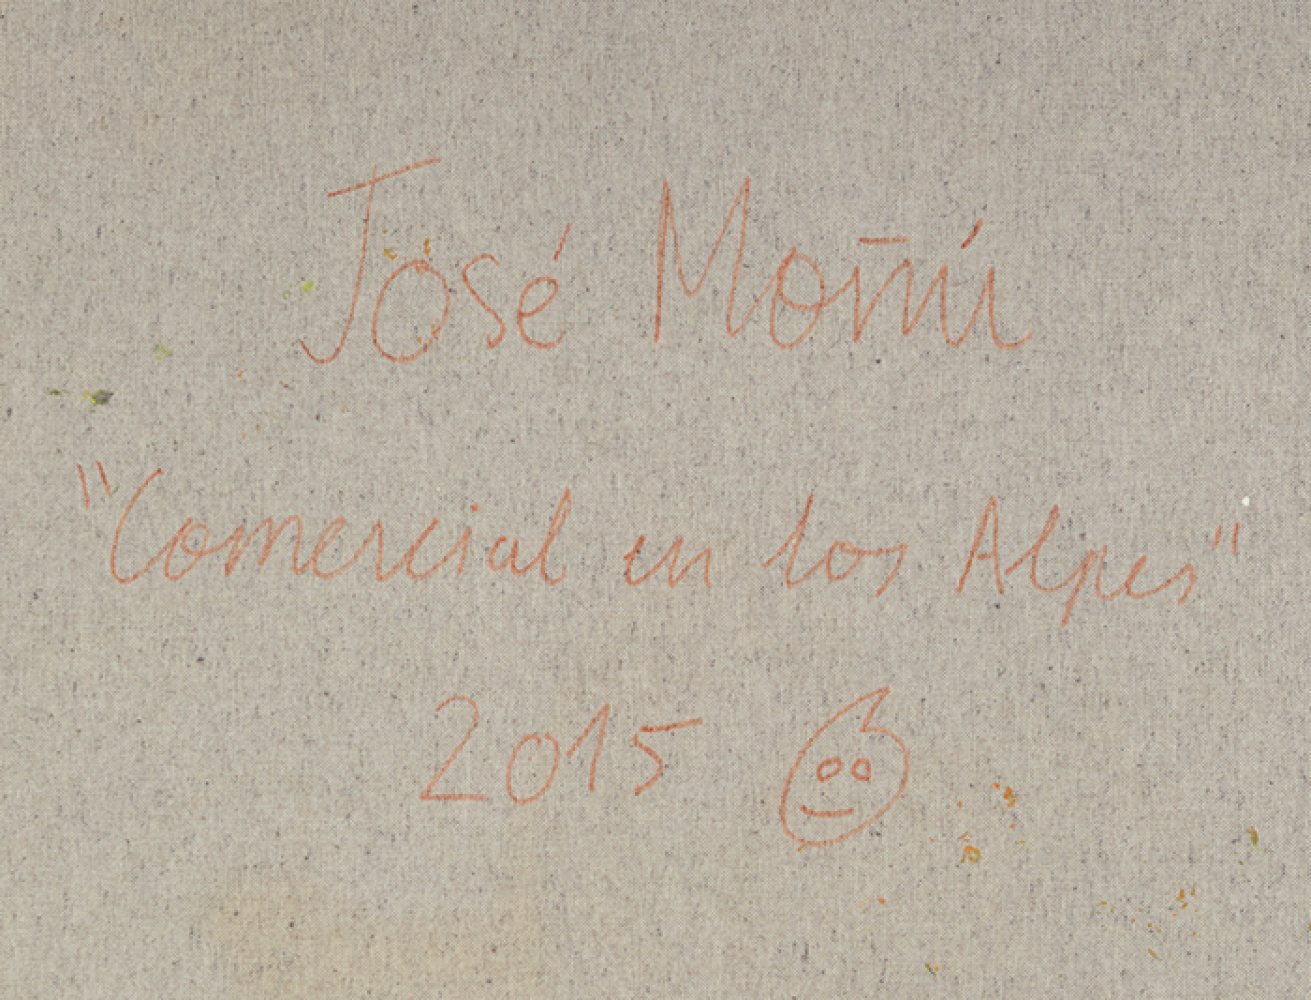 José Moñú
"Comercial en los Alpes"
2015